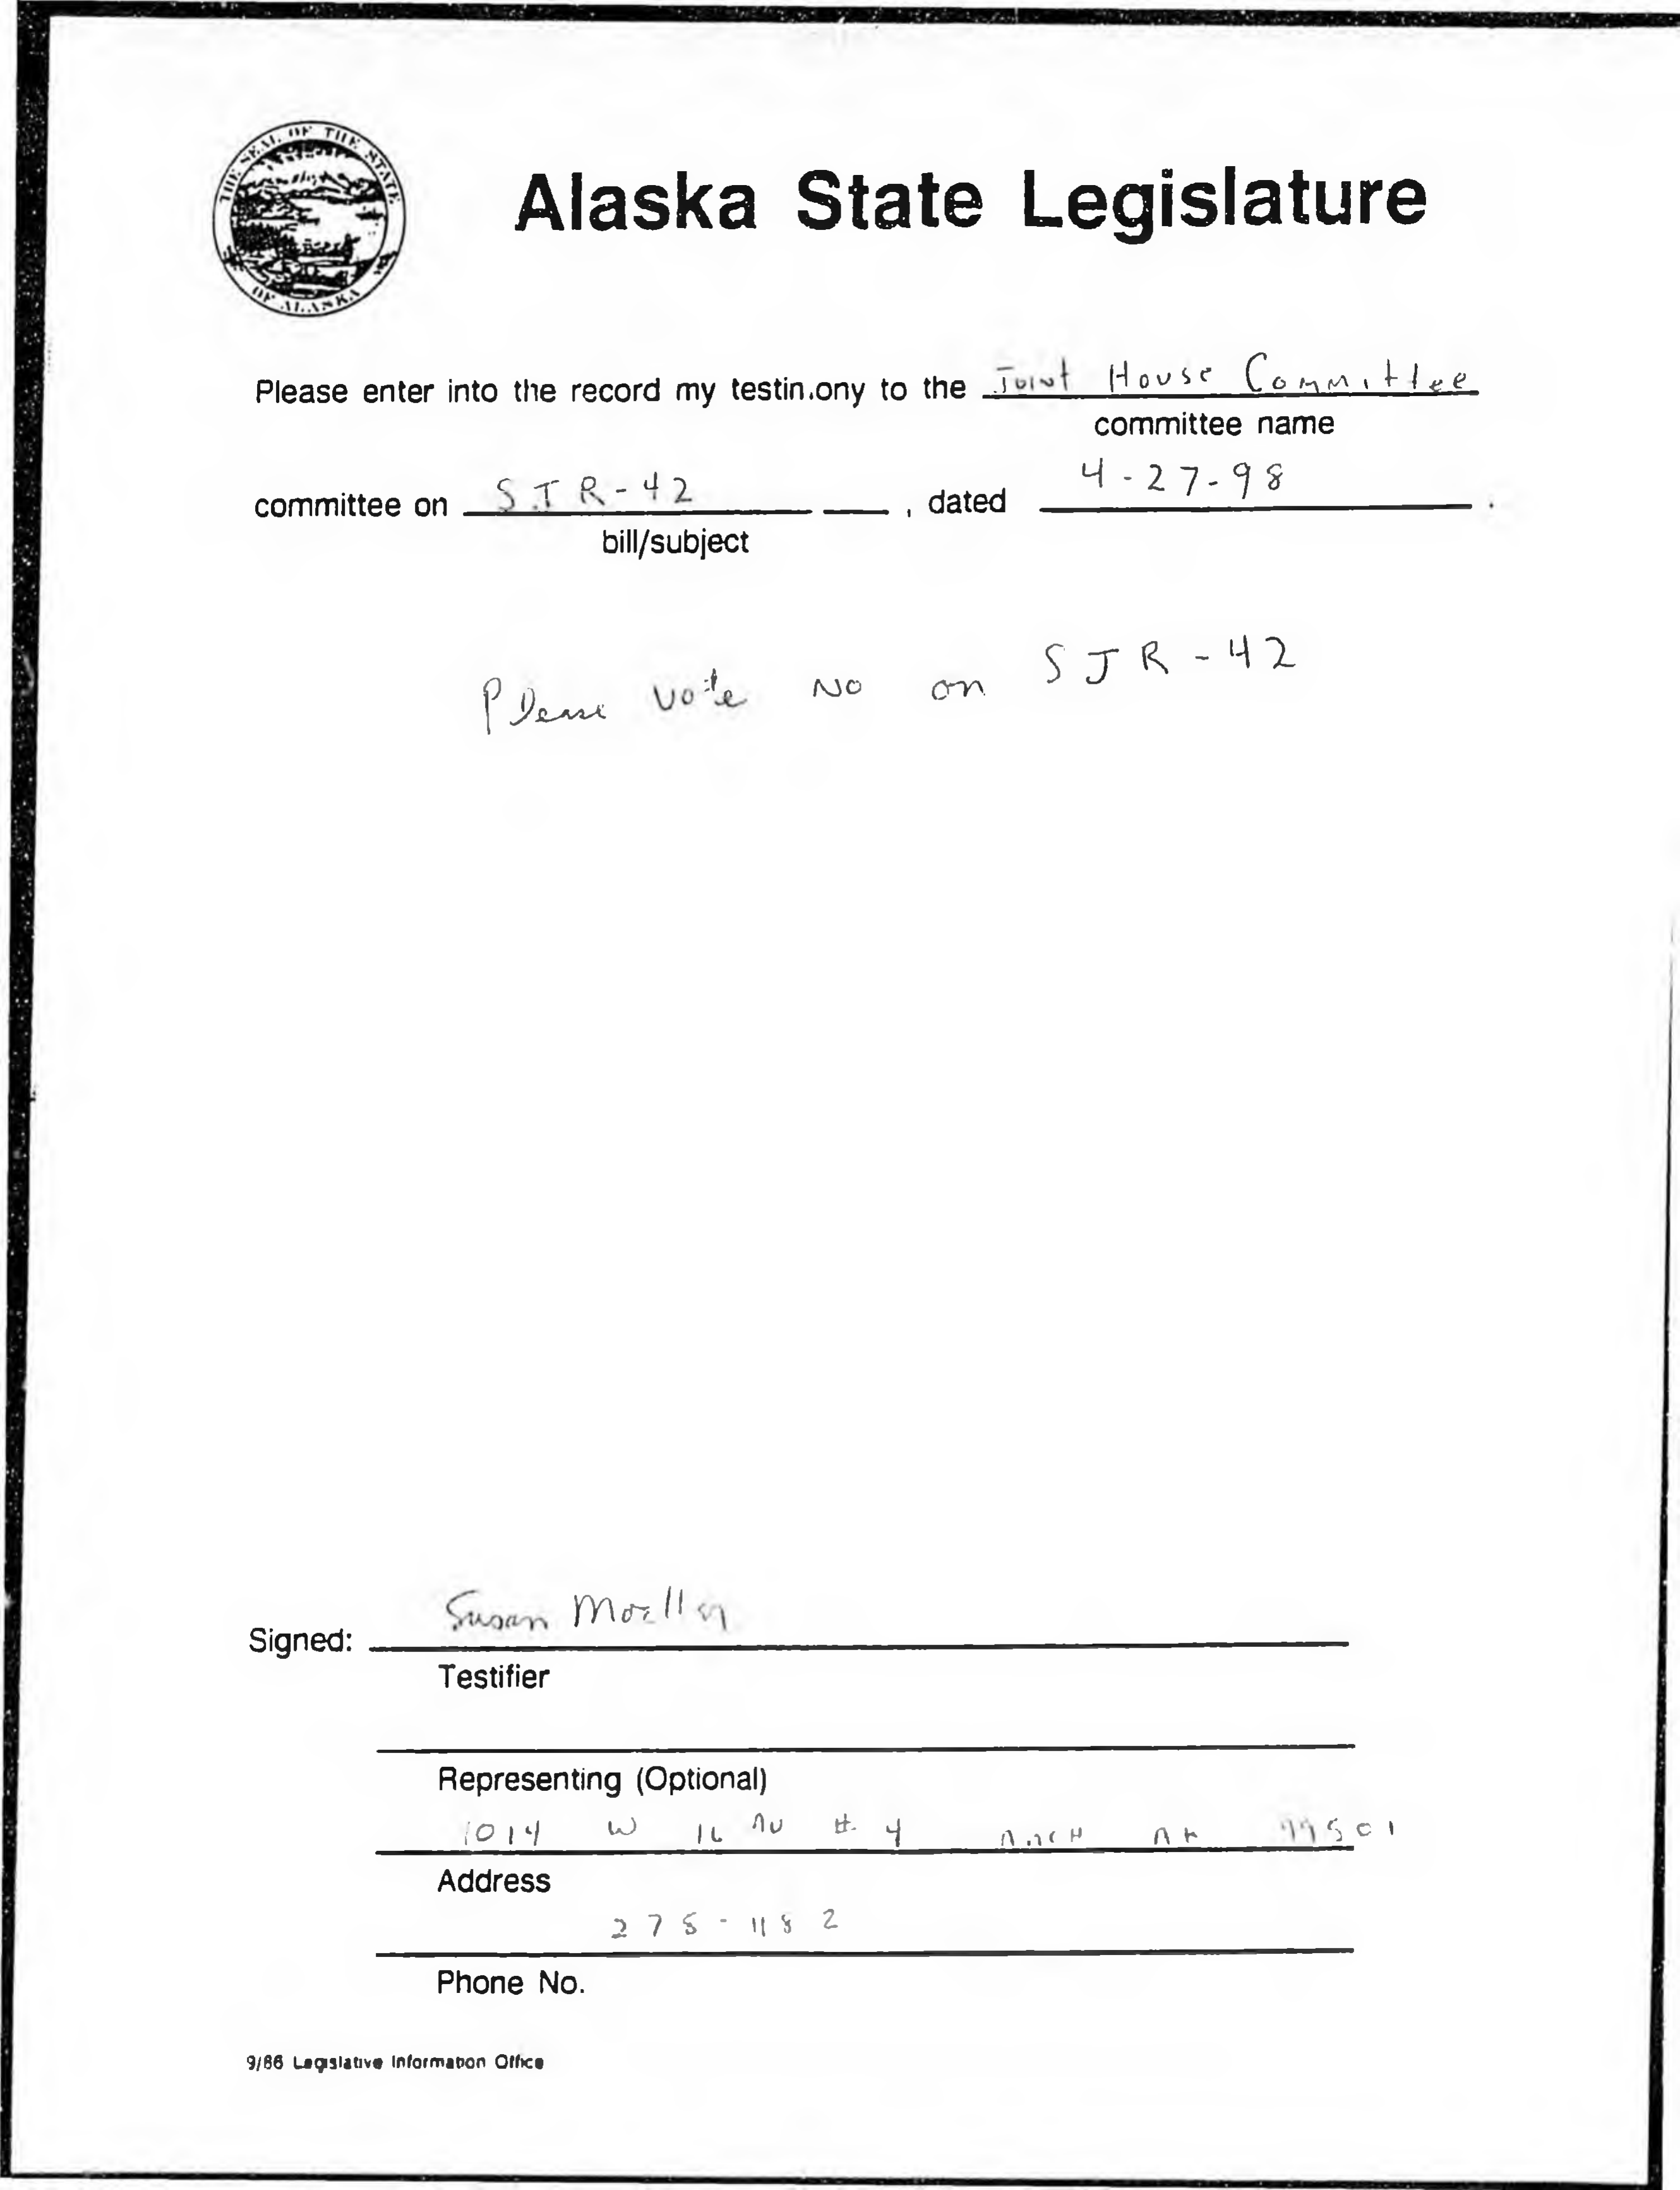 THE SEAL OF THE STATE OF ALASKA
Alaska State Legislature
Please enter into the record my testin.ony to the Joint House Committee
committee name
committee on SJR-42 , dated 4-27-98 .
bill/subject
Please vote NO on SJR-42
Signed: Susan
Testifier
Representing (Optional)
1014 W 16 AV # 4 ANCH AK 99501
Address
275-1182
Phone No.
9/86 Legislative Information Office